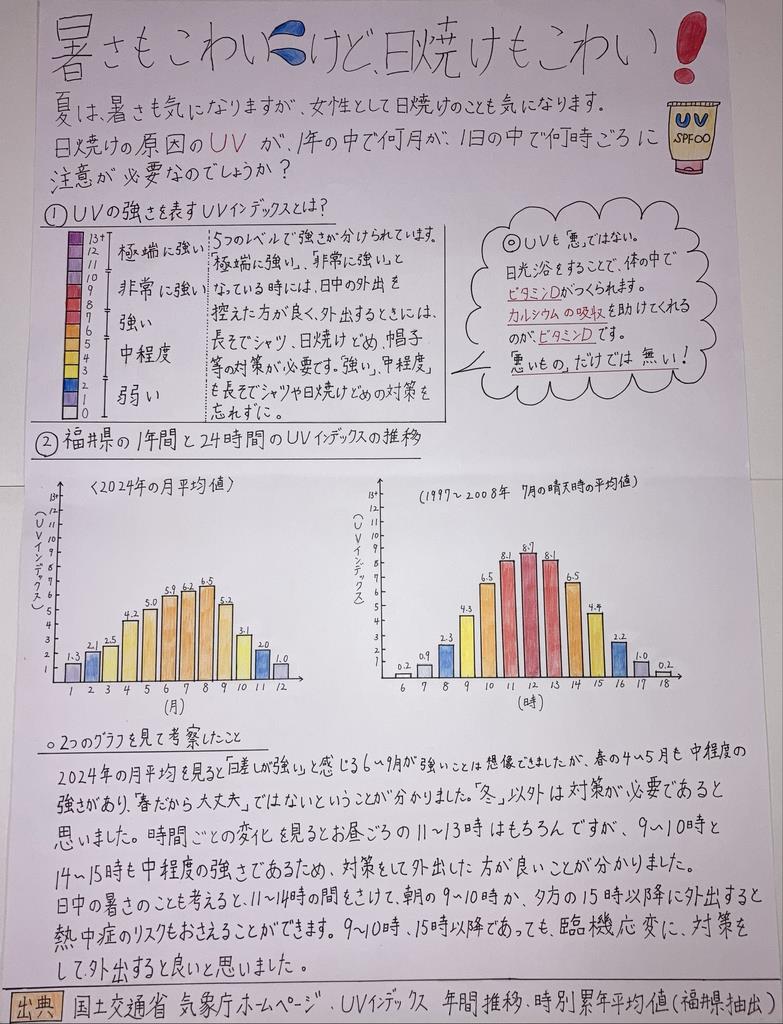 暑さもこわいけど、日焼けもこわい!
夏は、暑さも気になりますが、女性として日焼けのことも気になります。
日焼けの原因のUVが、1年の中で何月が、1日の中で何時ごろに
注意が必要なのでしょうか?
UV
SPF00
① UVの強さを表すUVインデックスとは?
13+
12
11
10
9
8
7
6
5
4
3
2
1
0
極端に強い
非常に強い
強い
中程度
弱い
5つのレベルで強さが分けられています。
「極端に強い」、「非常に強い」と
なっている時には、日中の外出を
控えた方が良く、外出するときには、
長そでシャツ、日焼けどめ、帽子
等の対策が必要です。「強い」、「中程度」
も長そでシャツや日焼けどめの対策を
忘れずに。
◎UVも「悪」ではない。
日光浴をすることで、体の中で
ビタミンDがつくられます。
カルシウムの吸収を助けてくれる
のが、ビタミンDです。
「悪いもの」だけでは無い!
② 福井県の1年間と24時間のUVインデックスの推移
〈2024年の月平均値〉
(UVインデックス)
13+
12
11
10
9
8
7
6
5
4
3
2
1
1.3 2.1 2.5 4.2 5.0 5.9 6.2 6.5 5.2 3.1 2.0 1.0
1 2 3 4 5 6 7 8 9 10 11 12
(月)
(1997~2008年 7月の晴天時の平均値)
(UVインデックス)
13+
12
11
10
9
8
7
6
5
4
3
2
1
0.2 0.9 2.3 4.3 6.5 8.1 8.7 8.1 6.5 4.4 2.2 1.0 0.2
6 7 8 9 10 11 12 13 14 15 16 17 18
(時)
○2つのグラフを見て考察したこと
2024年の月平均を見ると「日差しが強い」と感じる6~9月が強いことは想像できましたが、春の4~5月も中程度の
強さがあり、「春だから大丈夫」ではないということが分かりました。「冬」以外は対策が必要であると
思いました。時間ごとの変化を見るとお昼ごろの11~13時はもちろんですが、9~10時と
14~15時も中程度の強さであるため、対策をして外出した方が良いことが分かりました。
日中の暑さのことも考えると、11~14時の間をさけて、朝の9~10時か、夕方の15時以降に外出すると
熱中症のリスクもおさえることができます。9~10時、15時以降であっても、臨機応変に、対策を
して、外出すると良いと思いました。
出典 国土交通省 気象庁ホームページ・UVインデックス 年間推移・時別累年平均値(福井県抽出)